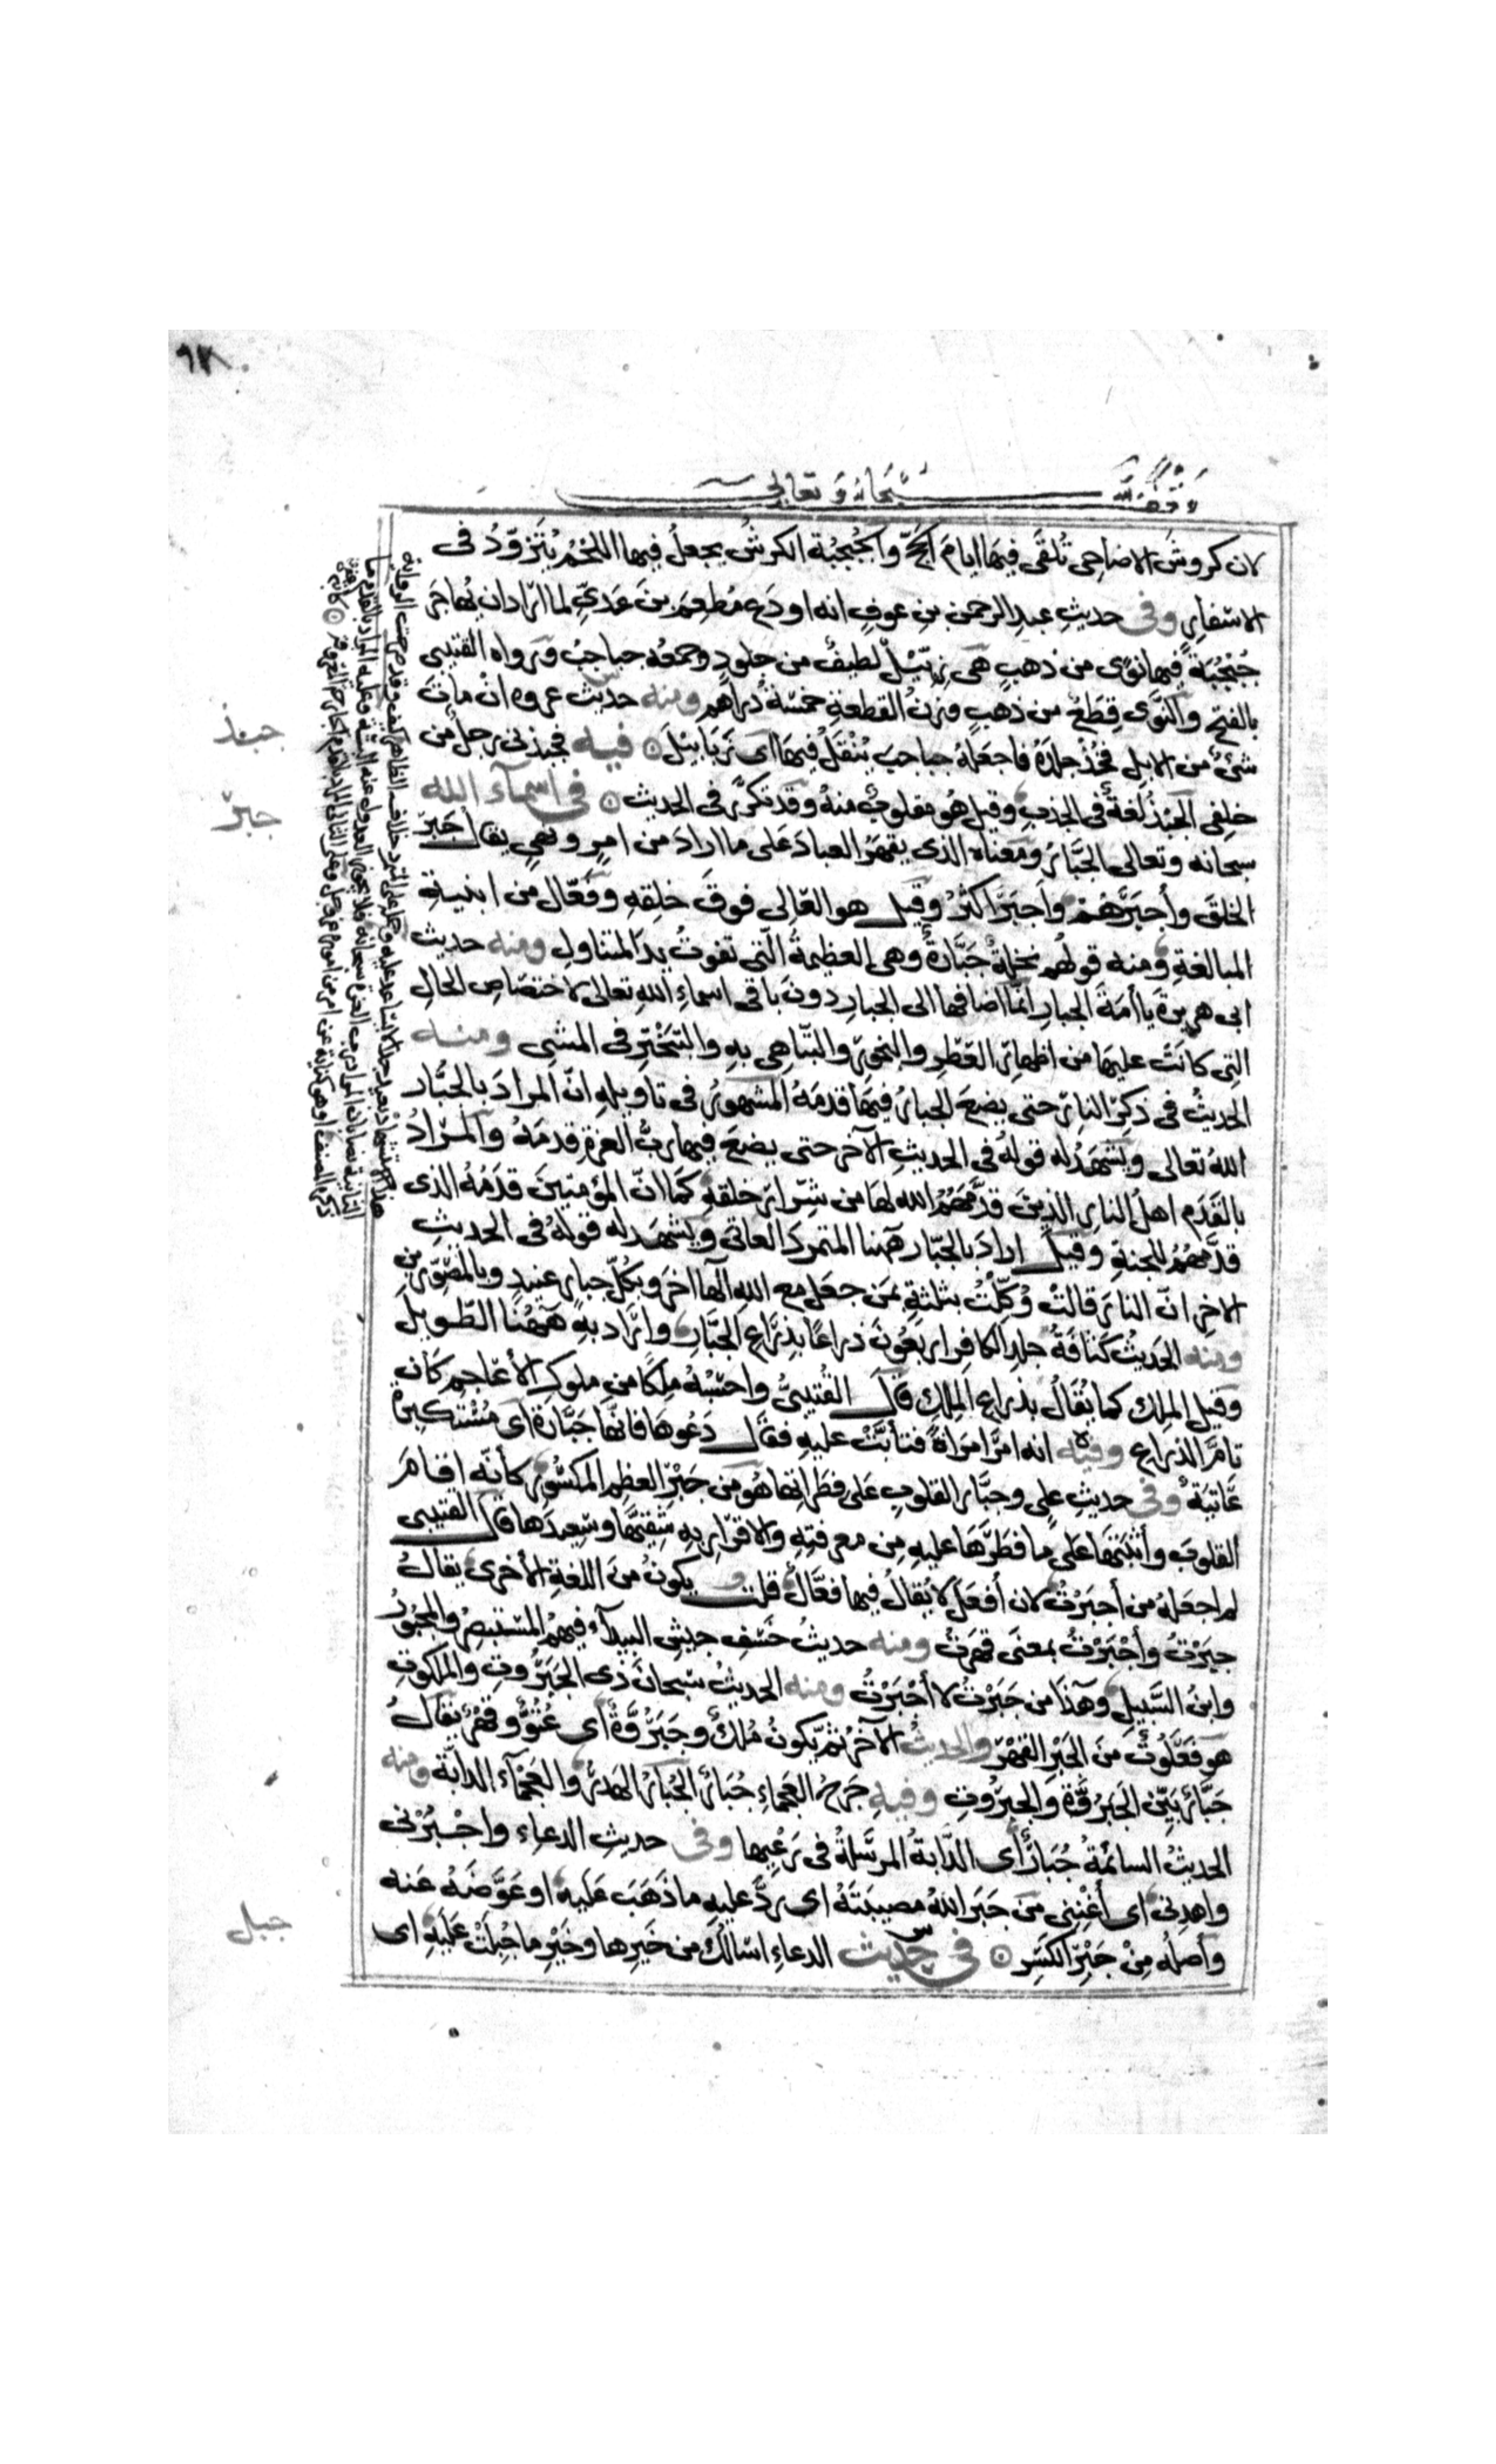 وقف لله سبحانه وتعالى
لان كروش الاضاحى تُلقى فيها ايام الحج والجُبجُبة الكرش يجعل فيها اللحم يُتزوّدُ فى
الاسفارِ وفى حديثِ عبدِ الرحمن بنِ عوفٍ انه اودع مُطعِمَ بنَ عَدىٍّ لما اراد ان يُهاجرَ
جُبْجُبَةً فيها نَوًى من ذهبٍ هى زِنبيلٌ لطيفٌ من جلودٍ وجمعُه جباجبُ ورواه القتيبى
بالفتح والنَّوى قِطَعٌ من ذهبٍ وزنُ القطعةِ خمسةُ دراهم ومنه حديث عروه انْ ماتَ
شئٌ من الابل فخُذْ جلدَهُ فاجعَلهُ جباجبَ يُنْقَلُ فيها اى زَبَابيْلَ ۞ فيه فجبذنى رجلٌ من
خلفى الجَبْذُ لغةٌ فى الجذبِ وقيل هو مقلوبٌ منهُ وقد تكرَّر فى الحديث ۞ فى اسمآء الله
سبحانه وتعالى الجَبَّارُ ومعناه الذى يقهَرُ العبادَ على ما ارادَ من امرٍ ونهىٍ يقال جَبَرَ
الخلقَ وأجبَرَهُمْ وأجبَرَ اكثرُ وقيل هو العَالِى فوقَ خلقِهِ وفعّال من ابنيةِ
المبالغةِ ومنه قولُهم نخلةٌ جَبَّارةٌ وهى العظيمةُ الّتى تفوتُ يدَ المتناولِ ومنه حديث
ابى هريرةَ يا أمَةَ الجبارِ انّما اضافها الى الجبارِ دونَ باقى اسماءِ اللهِ تعالى لاختصاصِ الحالِ
التِى كانَتْ عليها من اظهارِ العِطْرِ والبخورِ والتّباهِى بهِ والتَّبَخْتُرِ فى المشى ومنه
الحديثُ فى ذكرِ النارِ حتى يضعَ الجبارُ فيها قدمَهُ المشهورُ فى تاويلهِ انّ المرادَ بالجبَّارِ
اللهُ تعالى ويشهدُ له قولُهُ فى الحديثِ الآخر حتى يضعَ فيها ربُّ العزةِ قدمَهُ والمرادُ
بالقَدَمِ اهلُ النارِ الذينَ قدّمَهُمُ الله لها من شِرارِ خلقهِ كَمَا انّ المؤمنينَ قدَمُهُ الذى
قدّمهُمُ للجنةِ وقيل ارادَ بالجبّارِ ههنا المتمردَ العاتى ويشهدُ له قولُهُ فى الحديثِ
الاخرِ انّ النارَ قالتْ وُكِّلْتُ بثلثةٍ بمن جعلَ مع اللهِ الٰها اخرَ وبكلِّ جبارٍ عنيدٍ وبالمُصَوِّرين
ومنه الحديثُ كثافةُ جلدِ الكافر اربعُونَ ذراعًا بذِراعِ الجبّارِ واراد بهِ ههُنا الطّويل
وقيل الملِك كما يُقالُ بذراعِ الملِكِ قال القُتيبىُّ واحسَبُهُ ملِكًا من ملوكِ الأعاجم كان
تامَّ الذراعِ وفيه انه امرَ امرَاةً فتأبَّتْ عليهِ فقال دَعُوها فانّها جَبَّارَةٌ اى مُستكبرةٌ
عَاتيةٌ وفى حديثِ علىٍ وجبَّارِ القلوبِ على فطَراتها هُو من جَبْرِ العظمِ المكسُورِ كأنّه اقامَ
القلوبَ وأثبَتَها على ما فطَرَها عليهِ مِن معرفتِهِ والاقرارِ بهِ شقيِّها وسعيدِها قال القتيبى
لم اجعَلْهُ من أجبَرْتُ لان أفعَلَ لا يُقالُ فيها فعَّالٌ قلت ويكونُ منَ اللغةِ الأخرى يقالُ
جبَرْتُ وأجْبَرْتُ بمعنَى قهرتُ ومنه حديثُ خَسْفِ جيشِ البيدآء فيهمُ المستبصِرُ والمجبُورُ
وابنُ السَّبيلِ وهذا من جَبَرْتُ لا أجْبَرْتُ ومنه الحديثُ سبحانَ ذى الجبَرُوتِ والملكوتِ
هو فعَلُوتٌ منَ الجَبْرِ القَهْرِ والحديثُ الآخرُ ثم يكونُ مُلكٌ وجَبَرُوَّةٌ اى عُتُوٌّ وقهرٌ يُقالُ
جَبَّارٌ بيّن الجَبَرُوَّةِ والجبرُوتِ وفيهِ جَرحُ العجماءِ جُبَارٌ الجُبَارُ الهدَرُ والعَجْمآء الدابّة ومنه
الحديثُ السائمةُ جُبَارٌ أى الدّابةُ المرسَلةُ فى رَعْيِها وفى حديثِ الدعاءِ واجْبُرْنى
واهدِنى اى أغْنِنى مِن جَبَرَ اللهُ مصيبتَهُ اى ردَّ عليهِ ما ذَهَبَ عَليه او عَوّضَهُ عَنه
وأصلُه مِنْ جَبْرِ الكَسرِ ۞ فى حديث الدعاءِ اسالُكَ من خَيرِها وخَيْرِ ما جُبِلَتْ عَليَهِ اى
جبذ
جبر
جبل